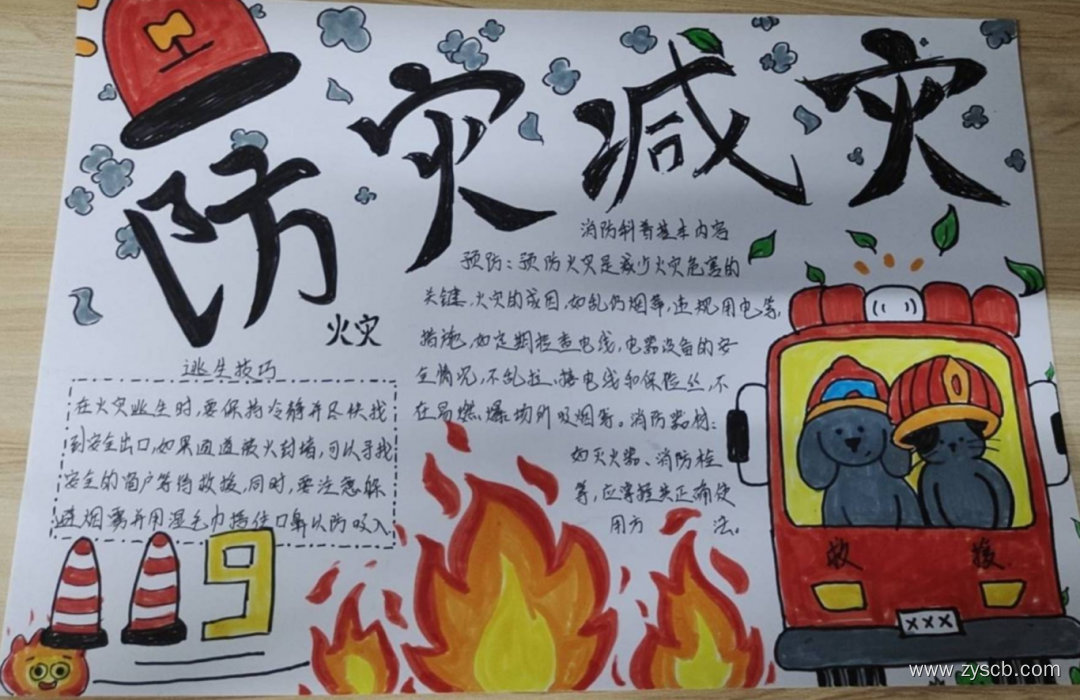 防灾减灾
火灾
逃生技巧
在火灾逃生时,要保持冷静并尽快找
到安全出口,如果通道被火封堵,可以寻找
安全的窗户等待救援,同时,要注意躲
避烟雾并用湿毛巾捂住口鼻以防吸入
消防科普基本内容
预防:预防火灾是减少火灾危害的
关键,火灾的成因,如乱仍烟草,违规用电等,
措施,如定期检查电线,电器设备的安
全情况,不乱拉、接电线和保险丝,不
在易燃、爆场所吸烟等。消防器材:
如灭火器、消防栓
等,应掌握其正确使
用方 法。
救 援
×××
9
www.zyscb.com